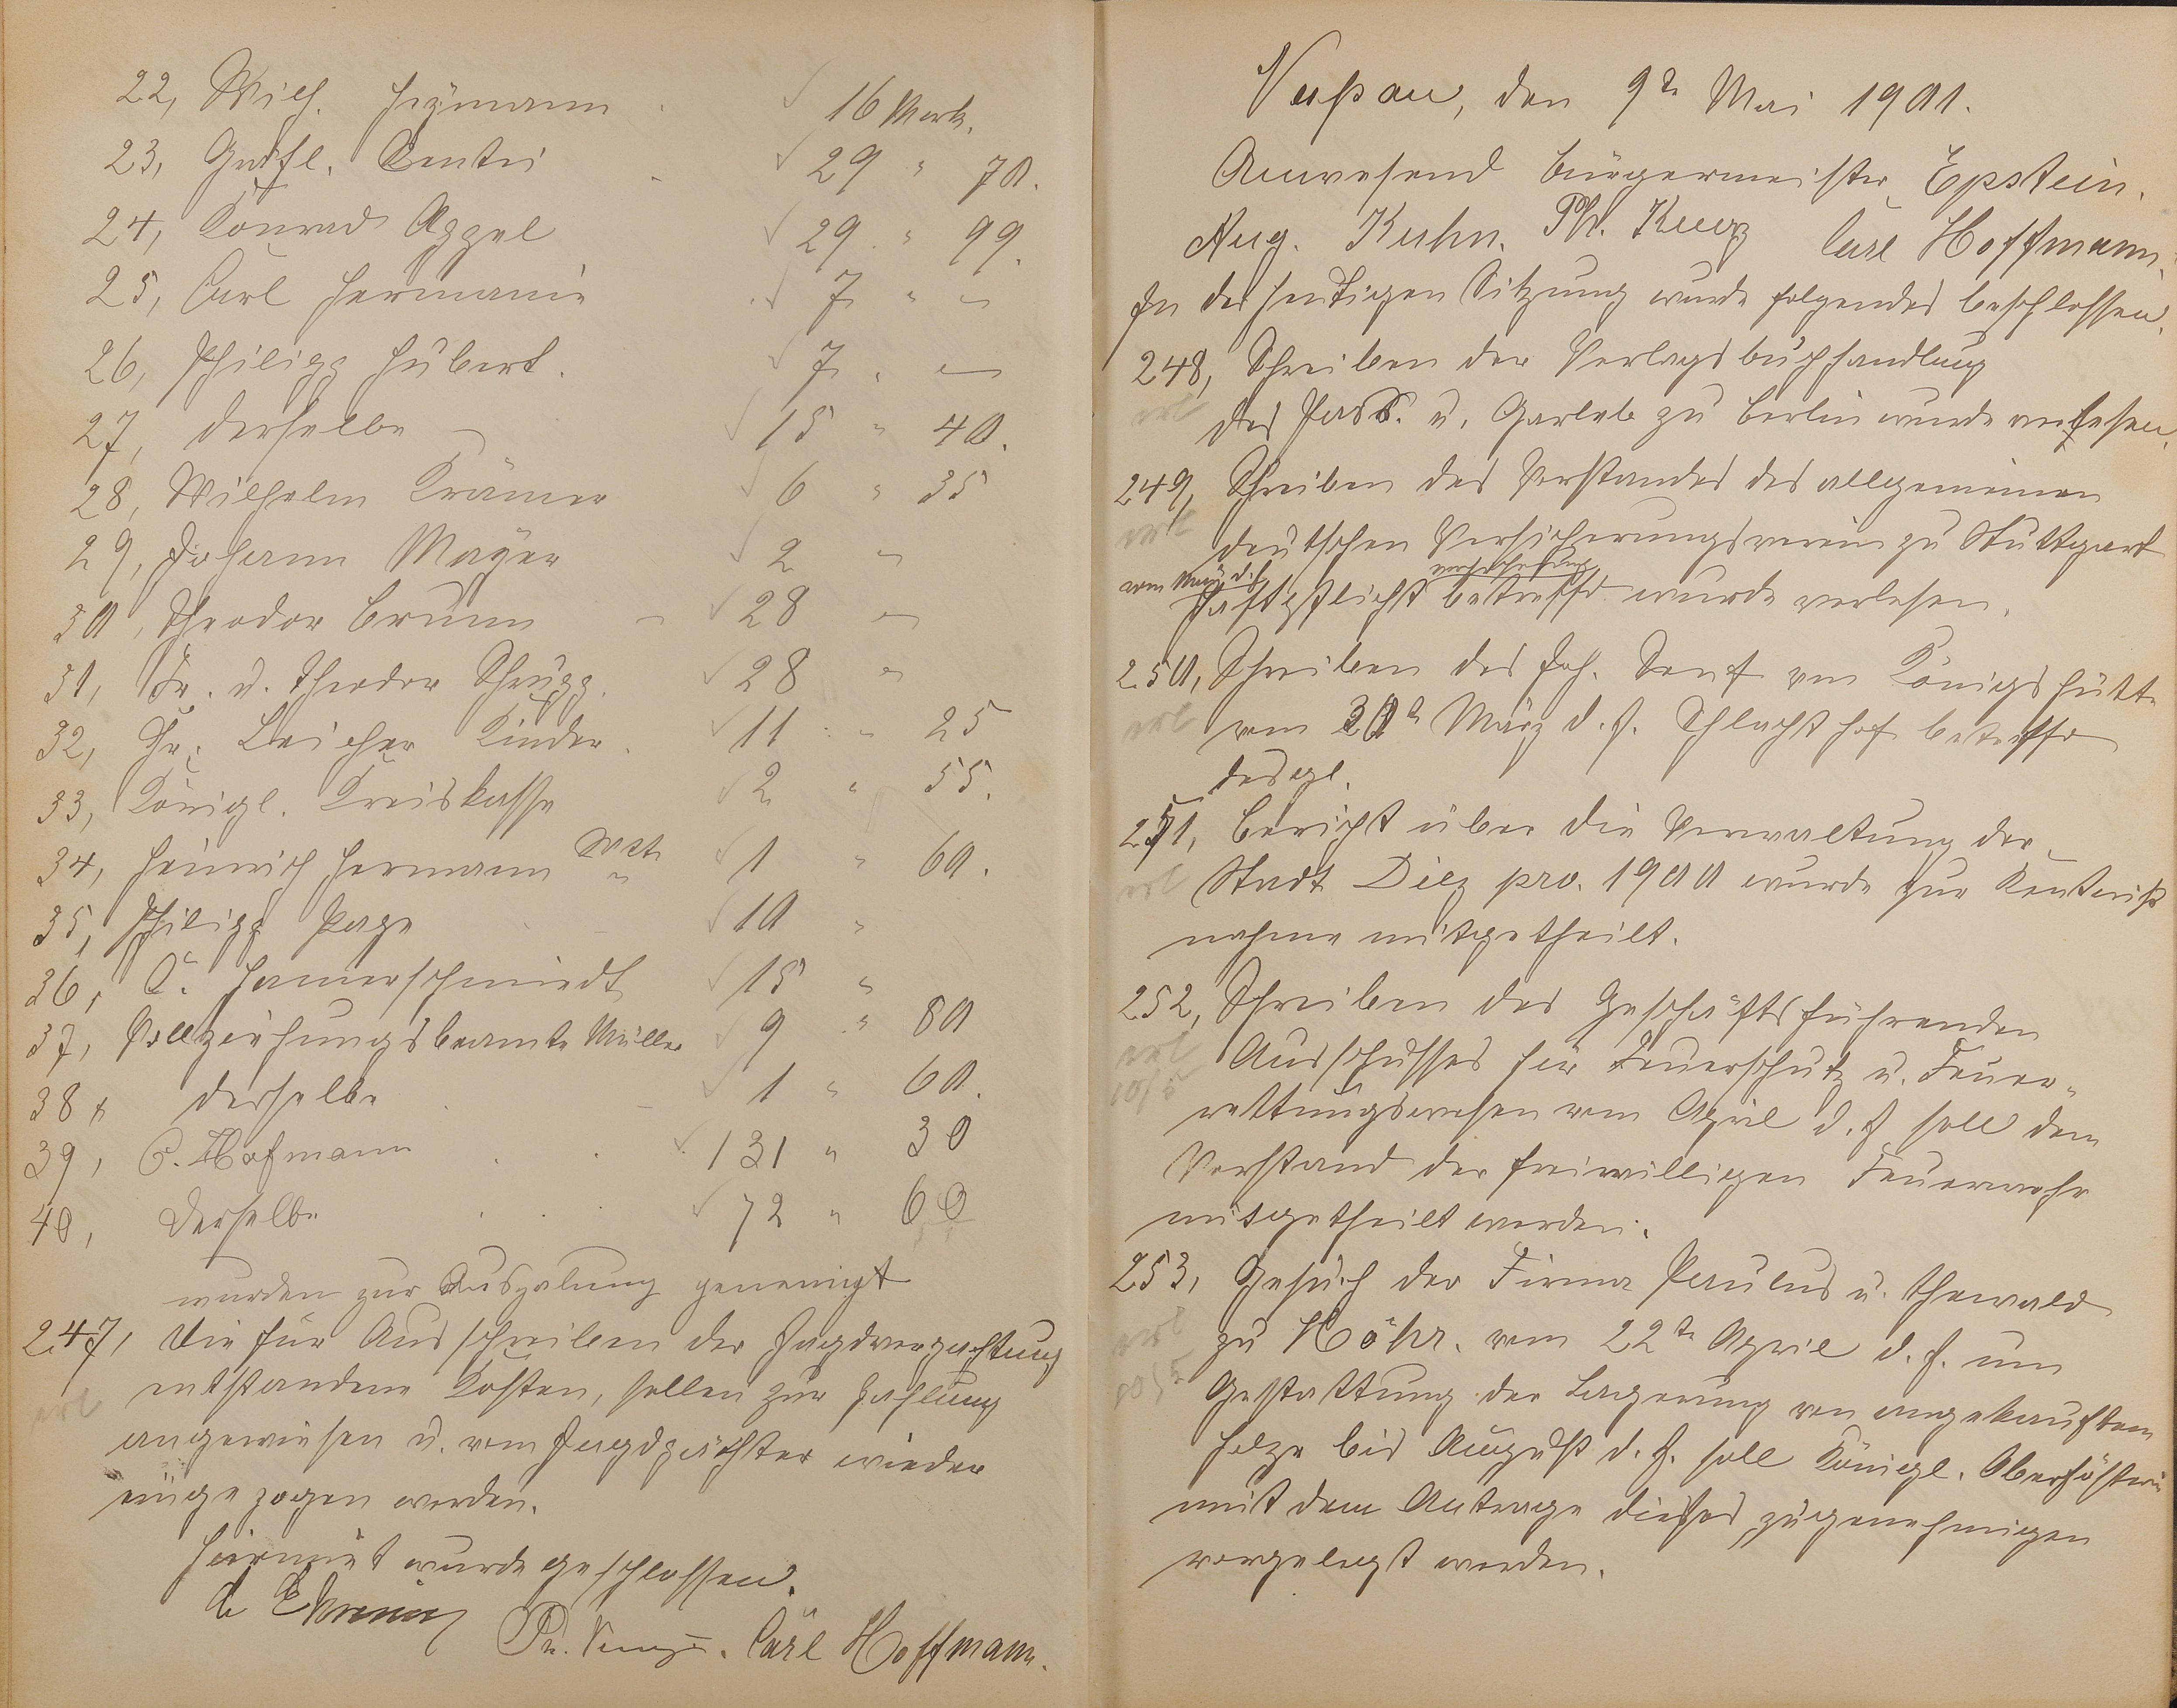 22, Wilh. Heymann ✓ 16 Mark.
23, Gräfl. Rentei ✓ 29 " 70.
24, Konrad Appel ✓ 29 " 99.
25, Carl Hermanni ✓ 7 " —
26, Philipp Hubert. ✓ 7 " —
27, derselbe — ✓ 15 " 40.
28, Wilhelm Krämer ✓ 6 " 35
29, Johann Mayer ✓ 2 —
30, Theodor Brunn — ✓ 28 —
31, Fr. u. Theodor Schrupp. ✓ 28 "
32, Chr. Leicher Kinder. ✓ 11 " 25
33, Königl. Kreiskasse ✓ 2 " 55.
34, Heinrich Hermann Wtt. ✓ 1 " 60.
35, Philipp Page ✓ 10 "
36, C. Hamerschmidt ✓ 15 "
37, Vollziehungsbeamte Müller ✓ 9 " 80
38, derselbe — ✓ 1 " 60.
39, C. Hofmann ✓ 131 " 30
40, derselbe ✓ 72 " 60
wurden zur Auszalung genemigt
247, Die für Ausschreiben der Jagdverpachtung
erl
entstandene Kosten, sollen zur Zahlung
angewiesen u. vom Jagdpächter wieder
eingezogen werden.
Hiermit wurde geschlossen.
Carl Hoffmann.
Nassau, den 9te Mai 1901.
Anwesend Bürgermeister Epstein.
Aug. Kuhn. Ph. Kurz Carl Hoffmann.
In der heutigen Sitzung wurde folgendes beschlossen.
248, Schreiben der Verlagsbuchhandlung
erl
des Pass. u. Garleb zu Berlin wurde verlesen.
249, Schreiben des Vorstandes des allgemeinen
erl
deutschen Versicherungsverein zu Stuttgart
vom März d. J.
Haftpflicht versicherung betreffd wurde verlesen.
250, Schreiben des Joh. Senf von Königshütte
erl
vom 30te März d. J. Schlachthof betreffd
desgl.
251, Bericht über die Verwaltung der
erl
Stadt Diez pro. 1900 wurde zur Kentniß
nahme mitgetheilt.
252, Schreiben des Geschäftsführenden
erl
10/5
Ausschusses für Feuerschutz u. Feuer-
rettungswesen vom April d. J. soll dem
Vorstand der freiwilligen Feuerwehr
mitgetheilt werden.
253, Gesuch der Firma Paulus u. Thewald
erl
10/5
zu Höhr. vom 22te April d. J. um
Gestattung der Lagerung von angekauftem
Holze bis August d. J. soll Königl. Oberförsterei
mit dem Antrage dieses zugenehmigen
vorgelegt werden.